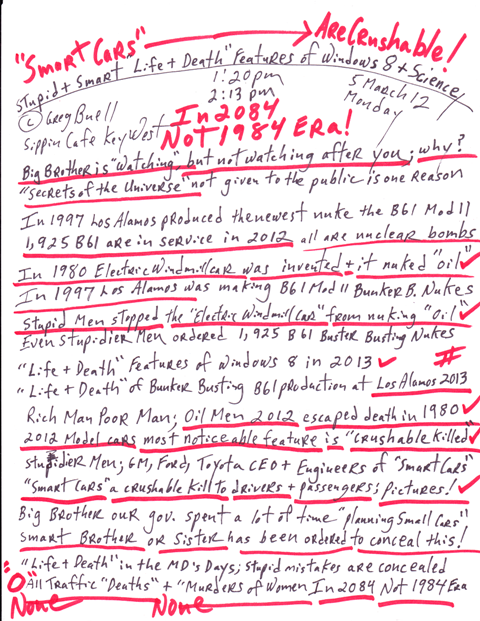 "Smart Cars" → Are Crushable!
Stupid + Smart Life + Death" Features of Windows 8 + Science,
1:20 pm
2:13 pm
5 March 12
Monday
© Greg Buell
Sippin Cafe Key West
In 2084
Not 1984 Era!
Big Brother is "watching" but not watching after you; why?
"Secrets of the Universe" not given to the public is one reason
In 1997 Los Alamos produced the newest nuke the B61 Mod 11
1,925 B61 are in service in 2012 all are nuclear bombs
In 1980 Electric Windmill car was invented + it nuked "oil" ✓
In 1997 Los Alamos was making B61 Mod 11 Bunker B. Nukes
Stupid Men stopped the "Electric Windmill Car" from nuking "Oil" ✓
Even Stupidier Men ordered 1,925 B61 Buster Busting Nukes
"Life + Death" Features of Windows 8 in 2013 ✓ #
"Life + Death" of Bunker Busting B61 production at Los Alamos 2013
Rich Man Poor Man; Oil Men 2012 escaped death in 1980 ✓
2012 Model cars most noticeable feature is "crushable killed" ✓
Stupidier Men; GM, Ford, Toyota CEO + Engineers of "Smart Cars"
"Smart Cars" a crushable kill to drivers + passengers; pictures! ✓
Big Brother our gov. spent a lot of time "planning Small Cars"
Smart Brother or Sister has been ordered to conceal this!
"Life + Death" in the MD's Days; stupid mistakes are concealed
All Traffic "Deaths" + "Murders of Women In 2084 Not 1984 Era
None None